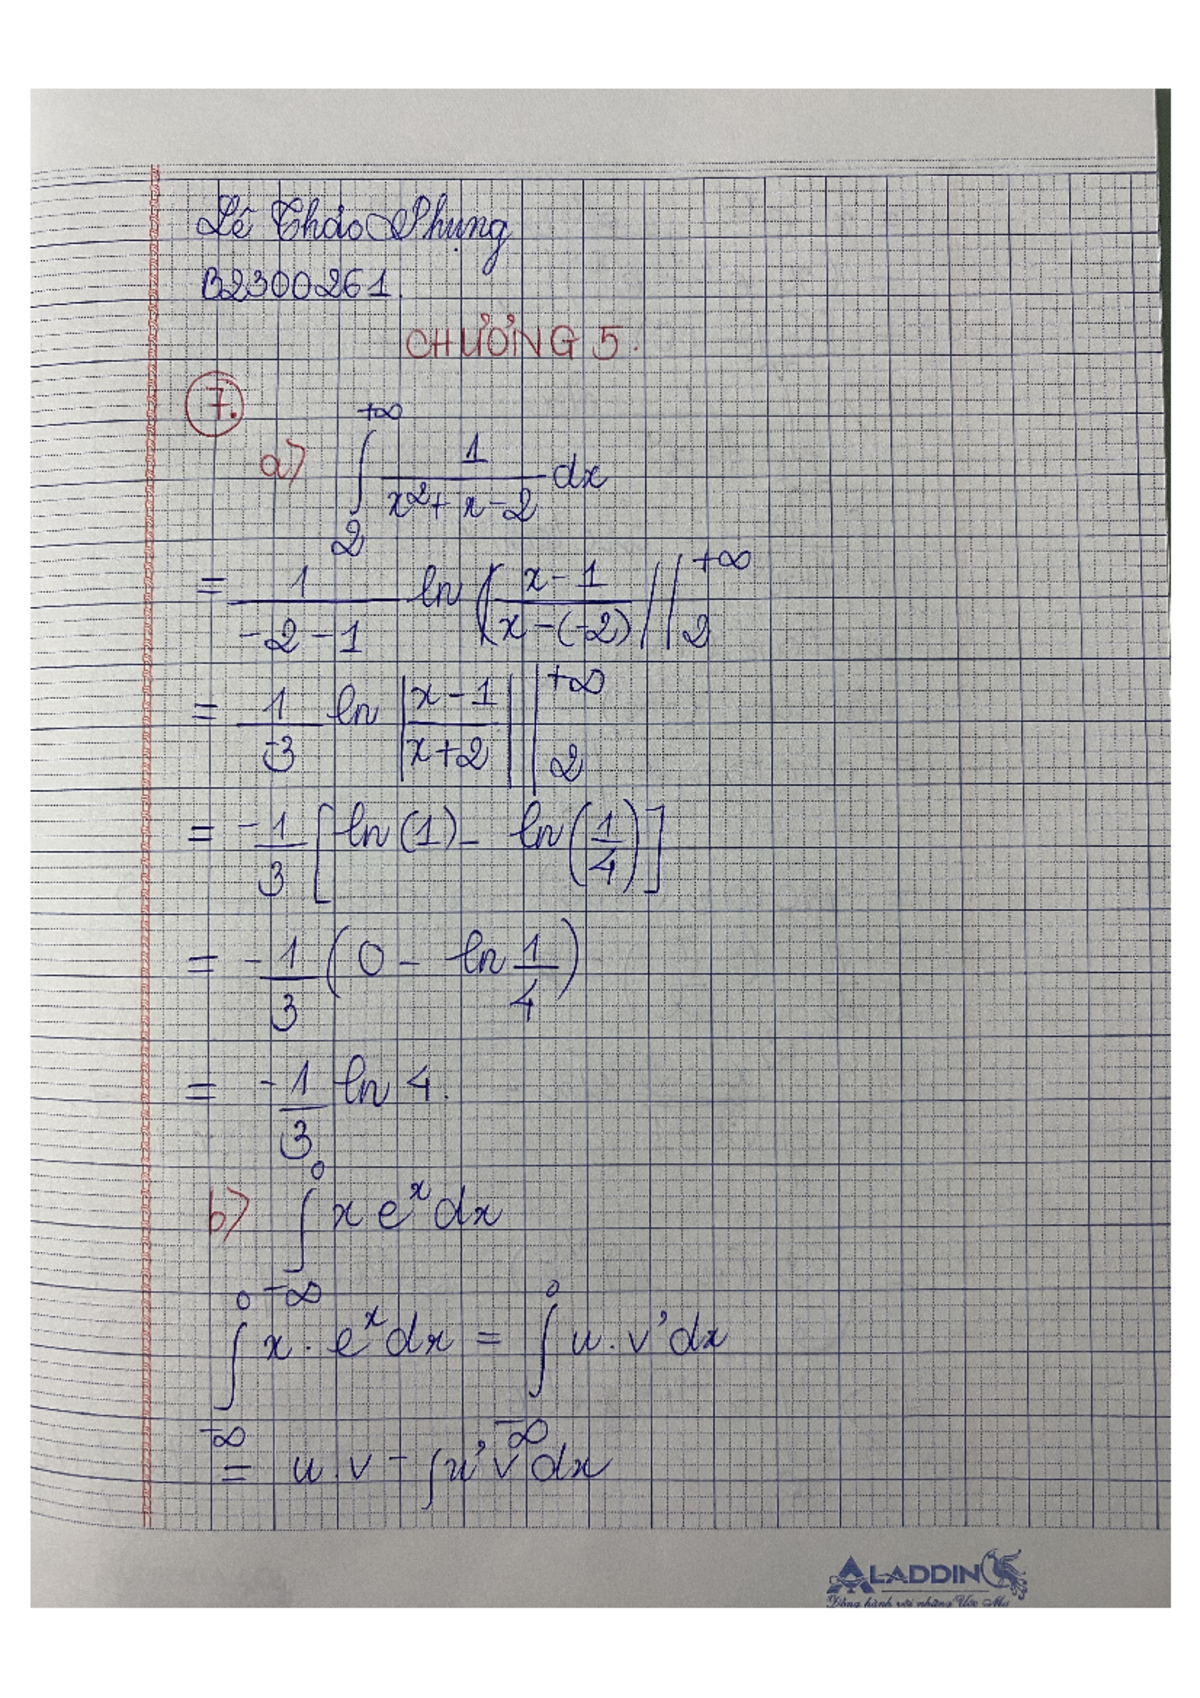 Lê Thảo Phụng
B2300261.
CHƯƠNG 5.
7.
a) ∫_2^{+∞} 1/(x²+x-2) dx
= 1/(-2-1) ln(|(x-1)/(x-(-2))|) |_2^{+∞}
= 1/-3 ln |(x-1)/(x+2)| |_2^{+∞}
= -1/3 [ln(1) - ln(1/4)]
= -1/3 (0 - ln 1/4)
= -1/3 ln 4.
b) ∫_{-∞}^0 x e^x dx
∫_{-∞}^0 x . e^x dx = ∫_{-∞}^0 u.v' dx
= u.v - ∫u' v dx
ALADDIN
Đồng hành với những Ước Mơ